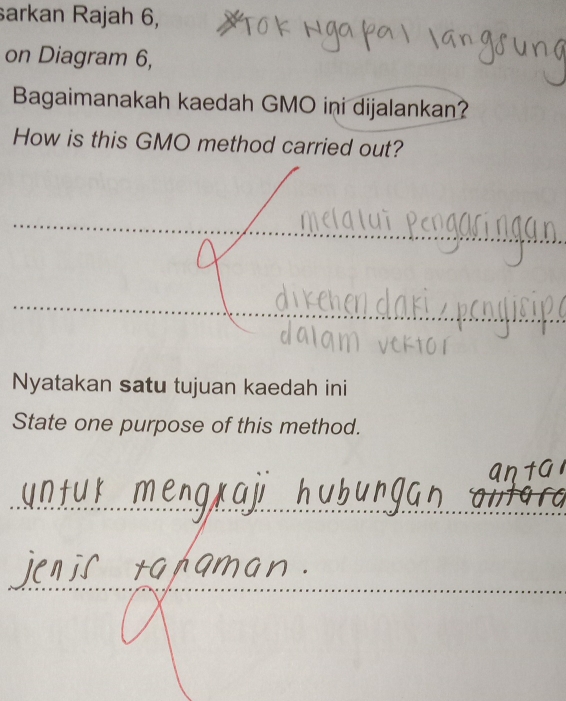 sarkan Rajah 6,
*Tok Ngapal langsung
on Diagram 6,
Bagaimanakah kaedah GMO ini dijalankan?
How is this GMO method carried out?
melalui pengasingan
dikehendaki, pengisipa
dalam vektor
Nyatakan satu tujuan kaedah ini
State one purpose of this method.
untuk mengkaji hubungan antar
jenis tanaman.